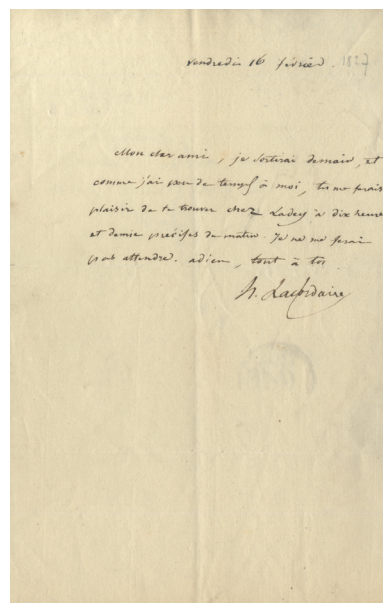 vendredi 16 février. 1827
Mon cher ami, je sortirai demain, et
comme j'ai peu de temps à moi, tu me ferais
plaisir de te trouver chez Ladey à dix heures
et demie précises du matin. Je ne me ferai
pas attendre. adieu, tout à toi
h. Lacordaire